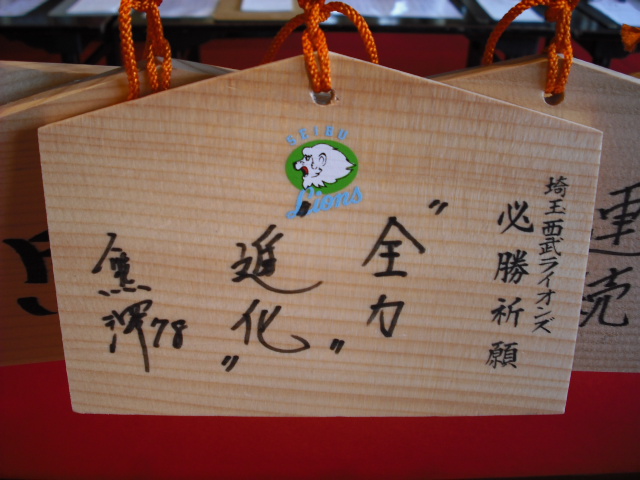 SEIBU
Lions
埼玉西武ライオンズ
必勝祈願
"全力"
"進化"
熊澤78